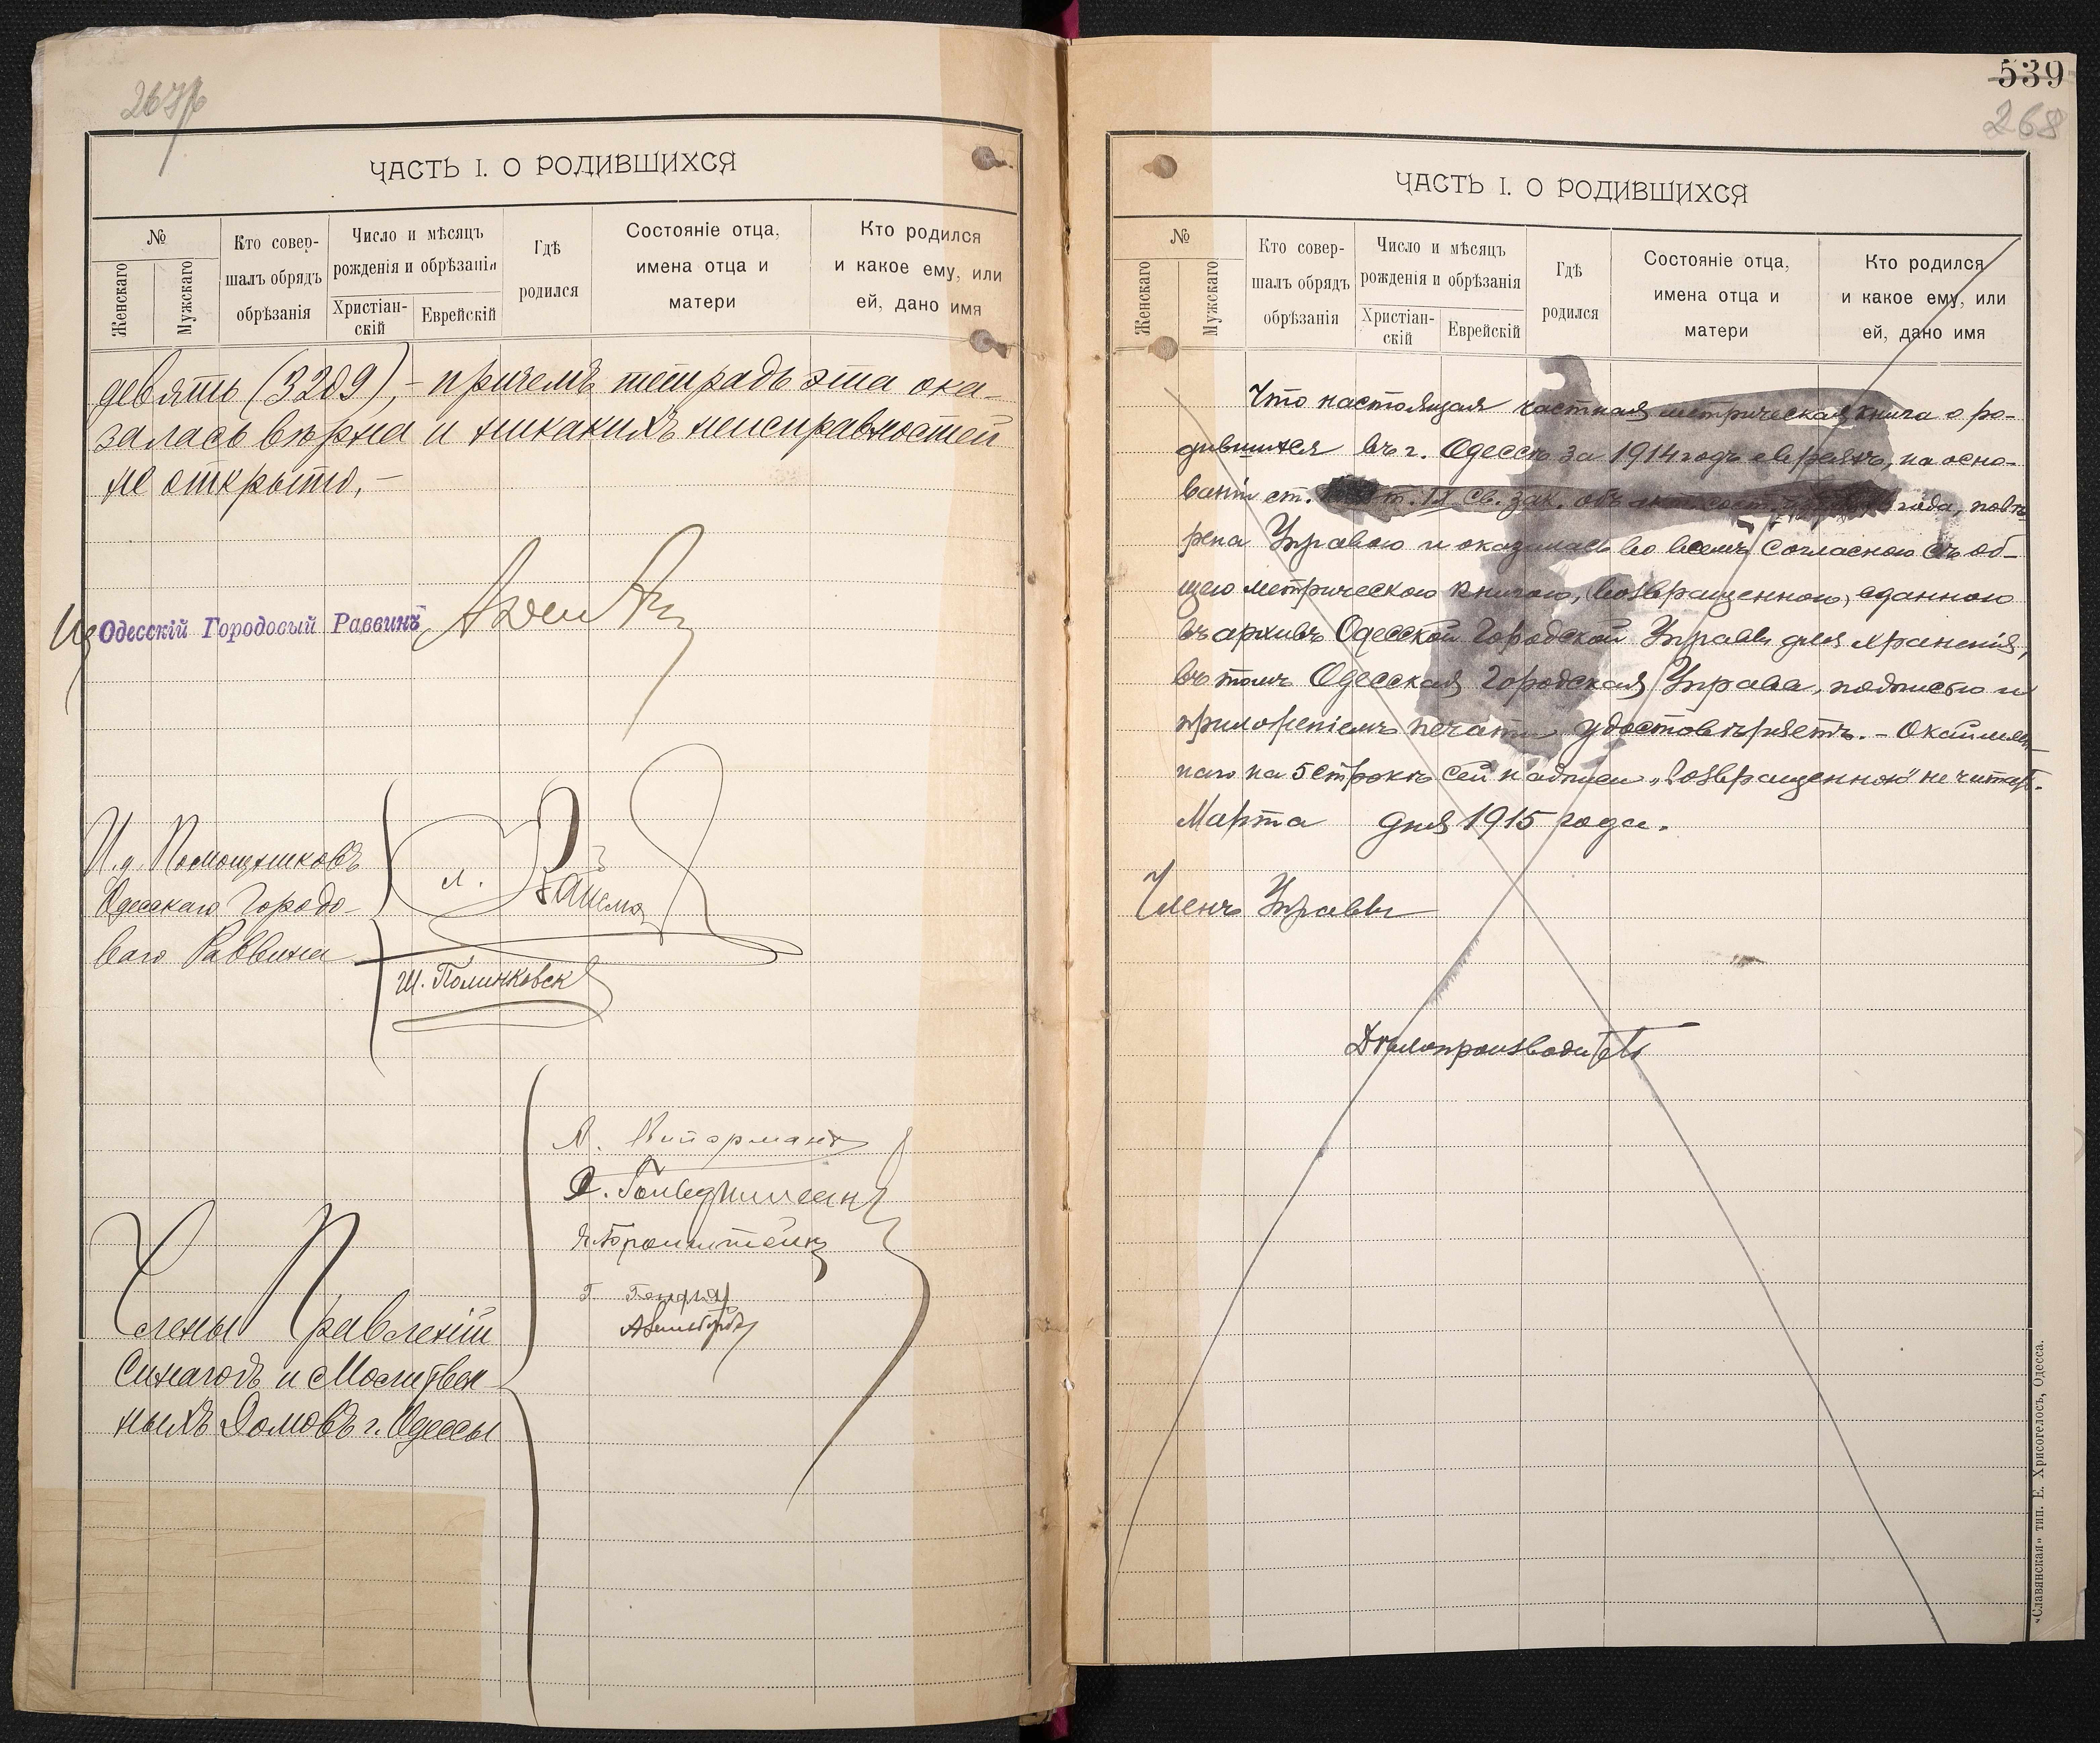 ЧАСТЬ I. О РОДИВШИХСЯ
№
Женскаго
Мужскаго
Кто совер-
шалъ обрядъ
обрѣзанія
Число и мѣсяцъ
рожденія и обрѣзанія
Христіан-
скій
Еврейскій
Гдѣ
родился
Состояніе отца,
имена отца и
матери
Кто родился
и какое ему, или
ей, дано имя
девять (3209),- причемъ тетрадь эта ока-
залась вѣрна и никакихъ неисправностей
не открыто.-
Одесскій Городовый Раввинъ
И.д. Помощниковъ
Одесскаго Городо-
ваго Раввина
Ш. Полинковск
Члены Правленій
Синагогъ и Молитвен-
ныхъ Домовъ г. Одессы
539
268
ЧАСТЬ I. О РОДИВШИХСЯ
№
Женскаго
Мужскаго
Кто совер-
шалъ обрядъ
обрѣзанія
Число и мѣсяцъ
рожденія и обрѣзанія
Христіан-
скій
Еврейскій
Гдѣ
родился
Состояніе отца,
имена отца и
матери
Кто родился
и какое ему, или
ей, дано имя
Что настоящая частная метрическая книга о ро-
дившихся въ г. Одессѣ за 1914 годъ евреяхъ, на осно-
ваніи ст. т. IX Св. Зак. объ акт. сост. года, повѣ-
рена Управою и оказалась во всемъ согласною съ об-
щею метрическою книгою, возвращенною, сданною
въ архивъ Одесской Городской Управы для храненія,
въ томъ Одесская Городская Управа, подписью и
приложеніемъ печати удостовѣряетъ. - Окаймлен-
наго на 5 строкѣ сей надписи „возвращенною" не читать.
Марта дня 1915 года.
Членъ Управы
Дѣлопроизводитель
«Славянская» тип. Е. Хрисогелосъ, Одесса.